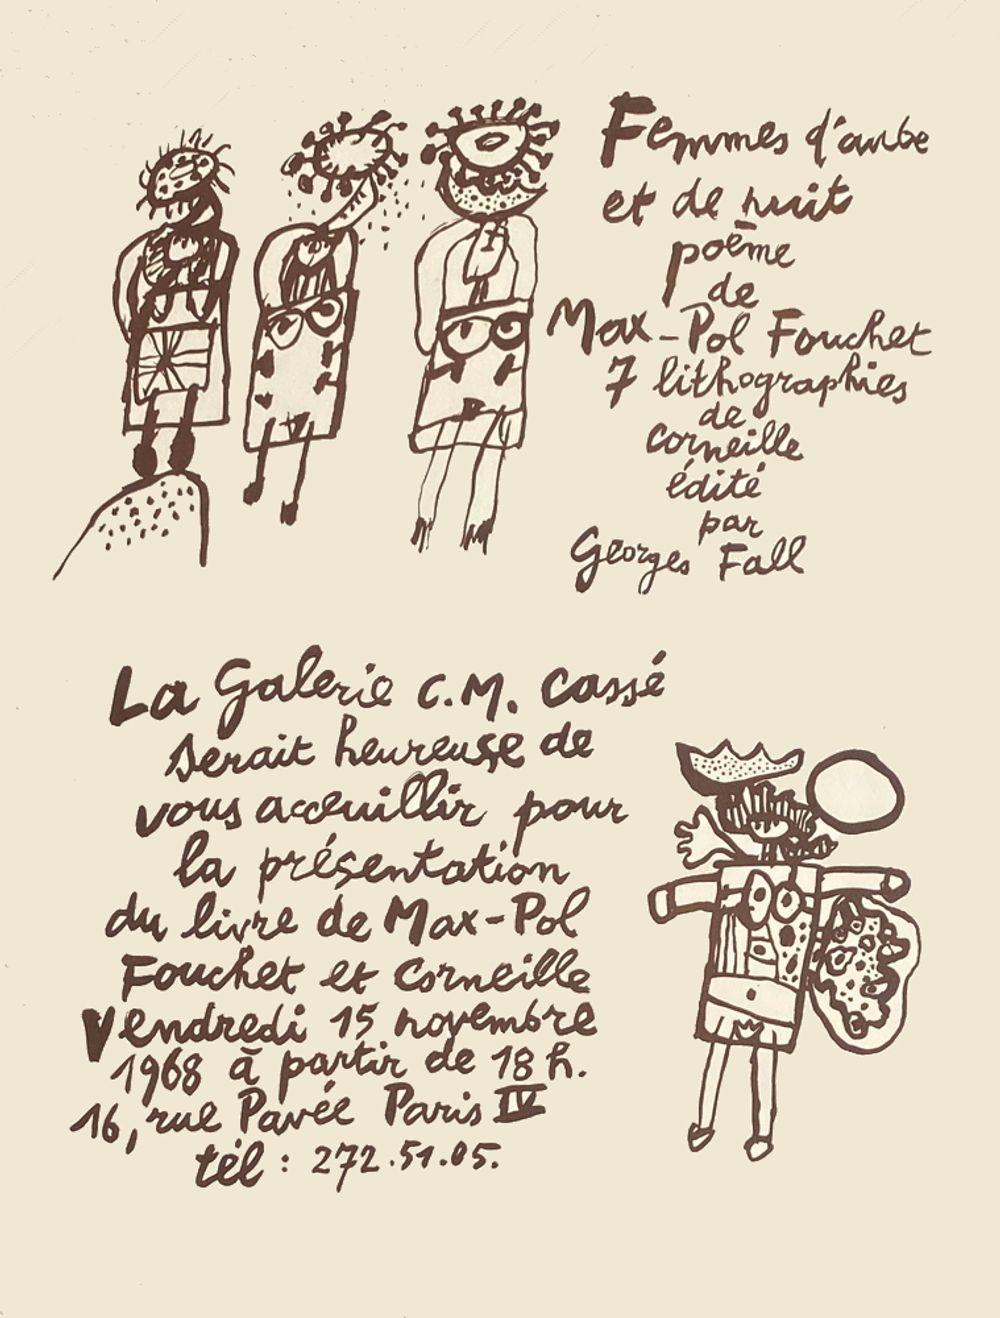 Femmes d'aube
et de nuit
poème
de
Max-Pol Fouchet
7 lithographies
de
Corneille
édité
par
Georges Fall
La Galerie C.M. Cassé
serait heureuse de
vous acceuillir pour
la présentation
du livre de Max-Pol
Fouchet et Corneille
Vendredi 15 novembre
1968 à partir de 18 h.
16, rue Pavée Paris IV
tél : 272.51.05.